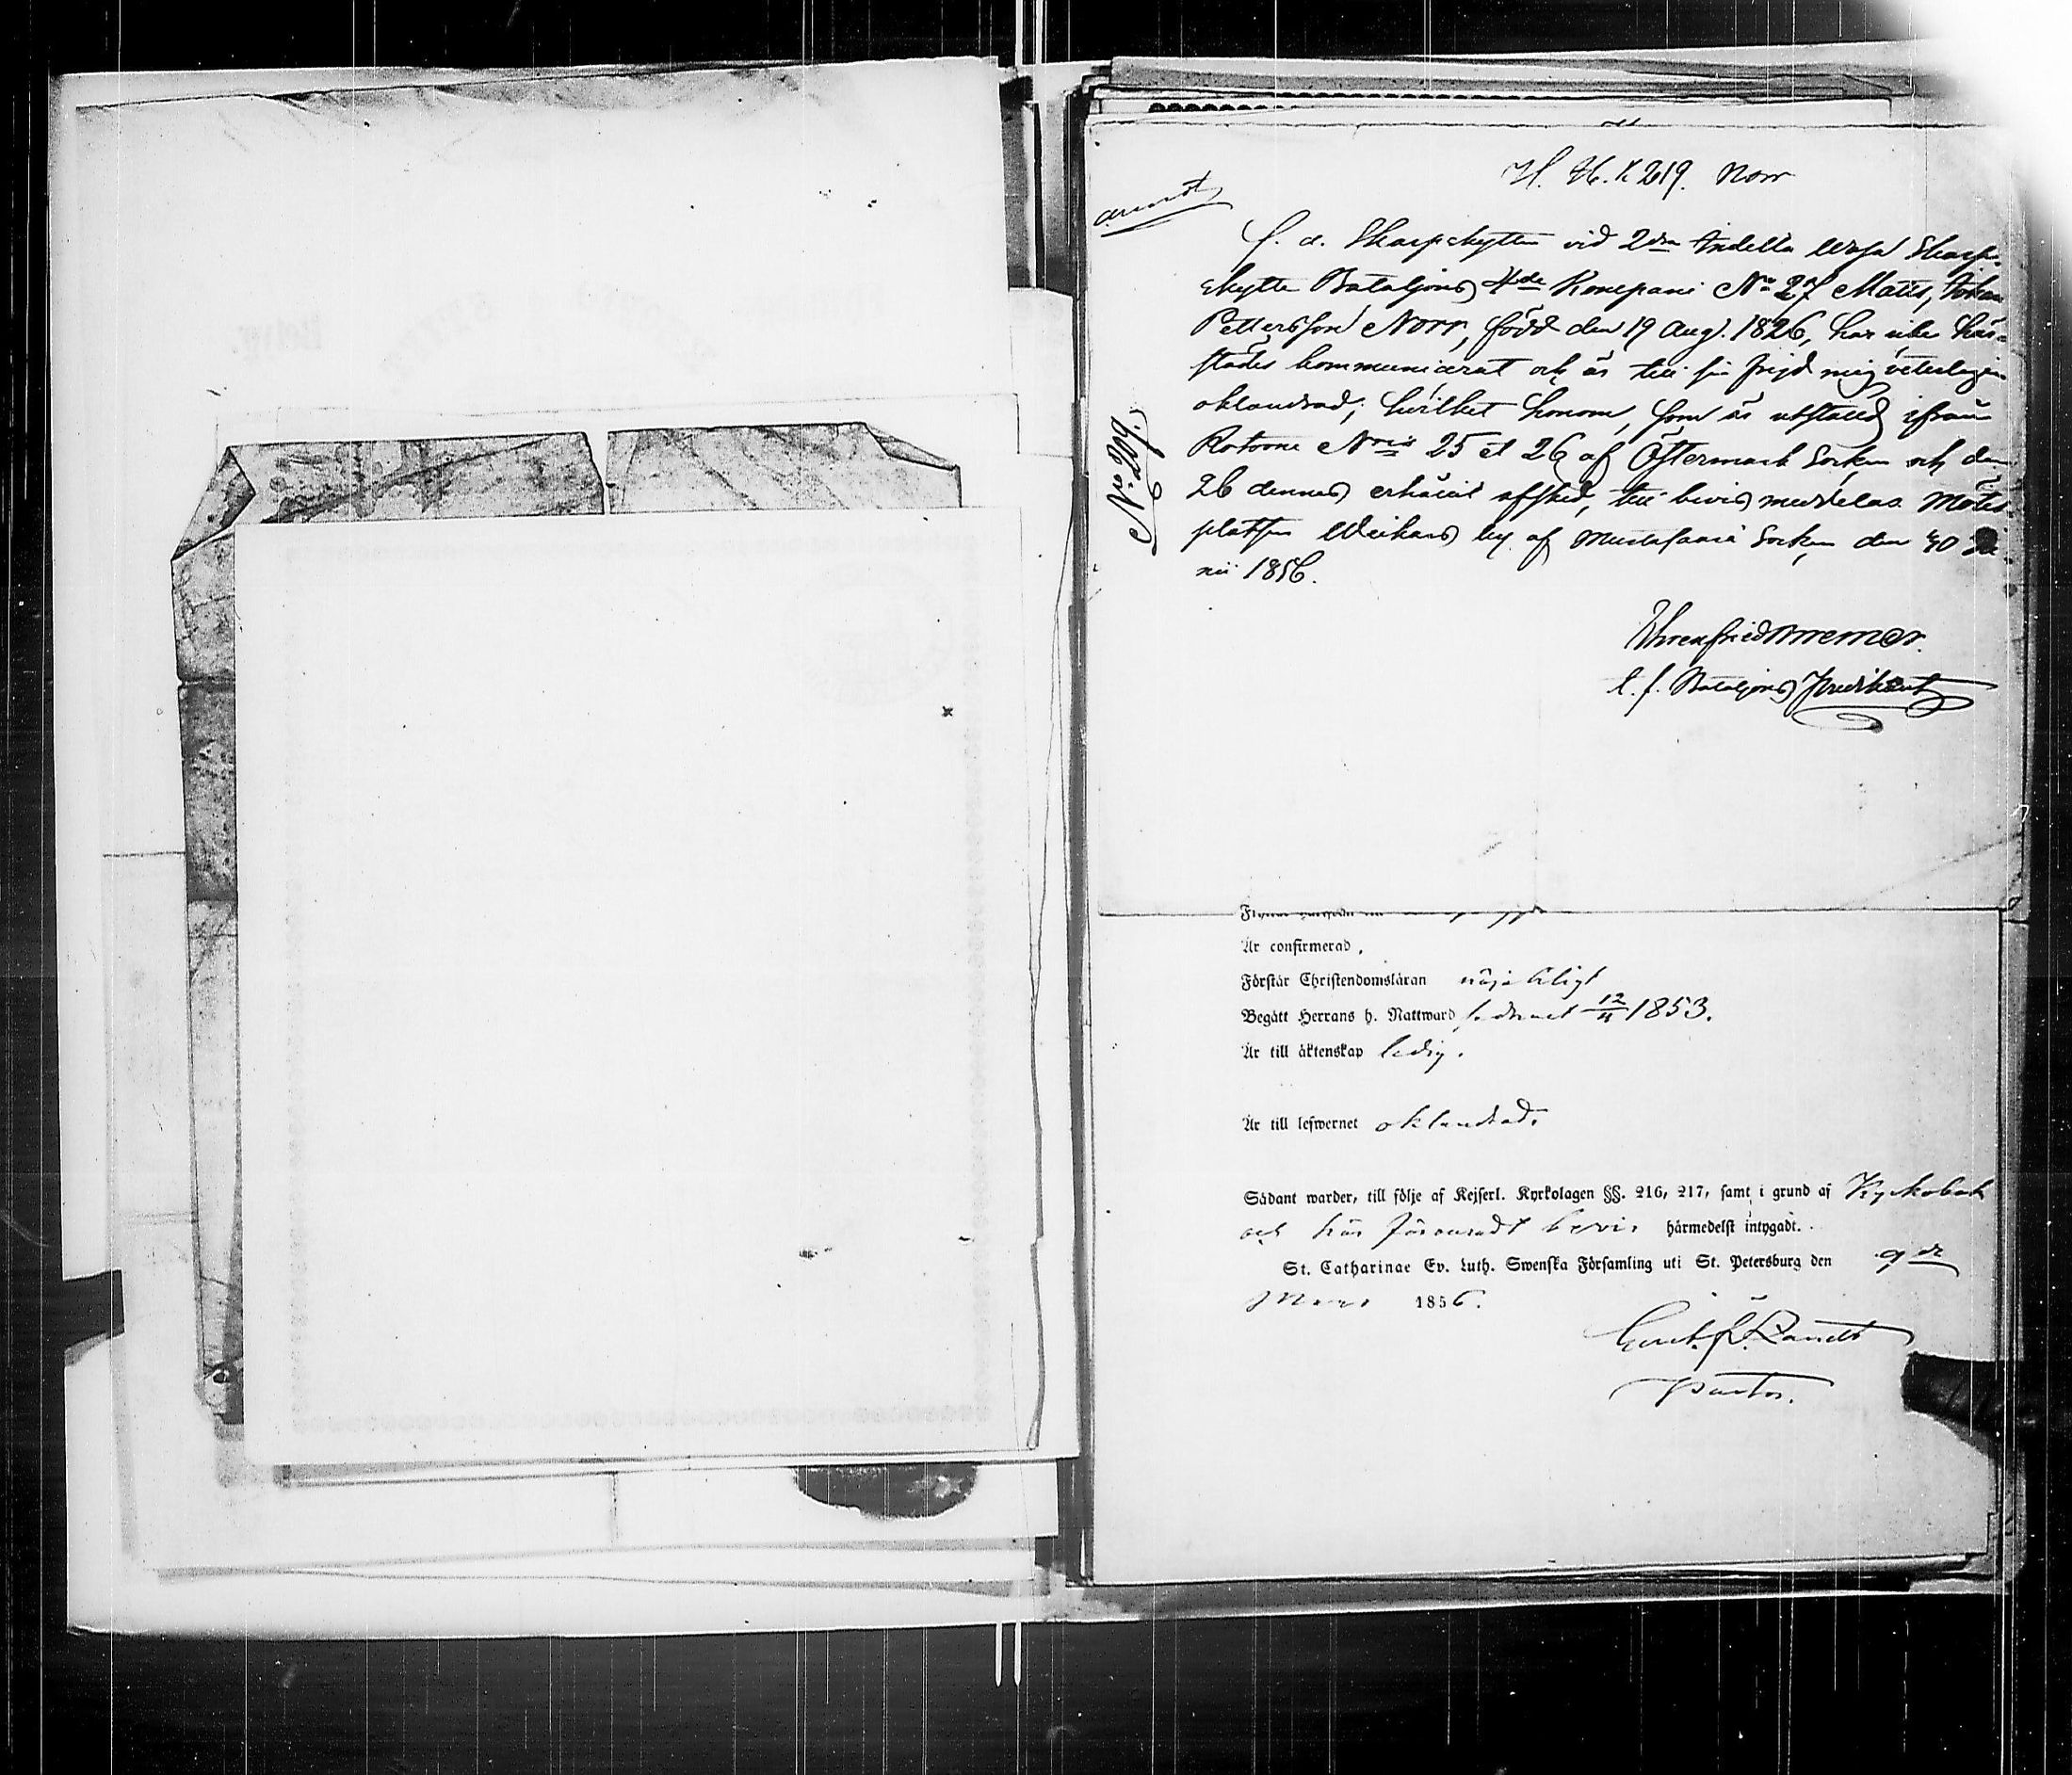 219. Norr
f. d. Skarpskytten vid 2dra Indelta Wasa Skarp-
skytte Bataljons 4de Kompani No 27 Matts Johan
Pettersson Norr, född den 19 Aug. 1826, har
städes kommunicerat och är till sin frejd mig veterligen
oklandrad; hvilket honom, som är utstäld ifrån
Rotorne Nris 25 et 26 af Östermark Socken och den
26 dennes erhållit afsked, till bevis meddelas. Mötes-
platsen by af Mustasaari Socken den 30 Ju-
nii 1856.
No 209.
Ehrenfried Bremer.
t. f. Bataljons Predikant
Är confirmerad,
Förstår Christendomsläran nöjaktigt
Begått Herrans h. Nattward sednast 12/4 1853.
Är till äktenskap ledig.
Är till lefwernet oklandrad.
Sådant warder, till följe af Kejserl. Kyrkolagen §§. 216, 217, samt i grund af Kyrkobok
och här förvaradt bevis härmedelst intygadt.
St. Catharinae Ev. Luth. Swenska Församling uti St. Petersburg den 9de
Mars 1856.
Pastor.